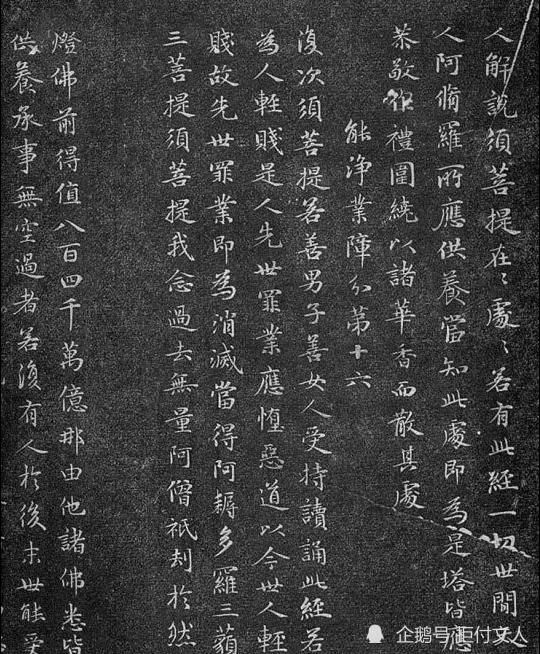 人解說須菩提在〻處〻若有此經一切世間天
人阿脩羅所應供養當知此處即為是塔皆應
恭敬作禮圍繞以諸華香而散其處
能淨業障分第十六
復次須菩提若善男子善女人受持讀誦此經若
為人輕賤是人先世罪業應墮惡道以今世人輕
賤故先世罪業即為消滅當得阿耨多羅三藐
三菩提須菩提我念過去無量阿僧祇刼於然
燈佛前得值八百四千萬億那由他諸佛悉皆
供養承事無空過者若復有人於後末世能受
企鹅号 臣付文人